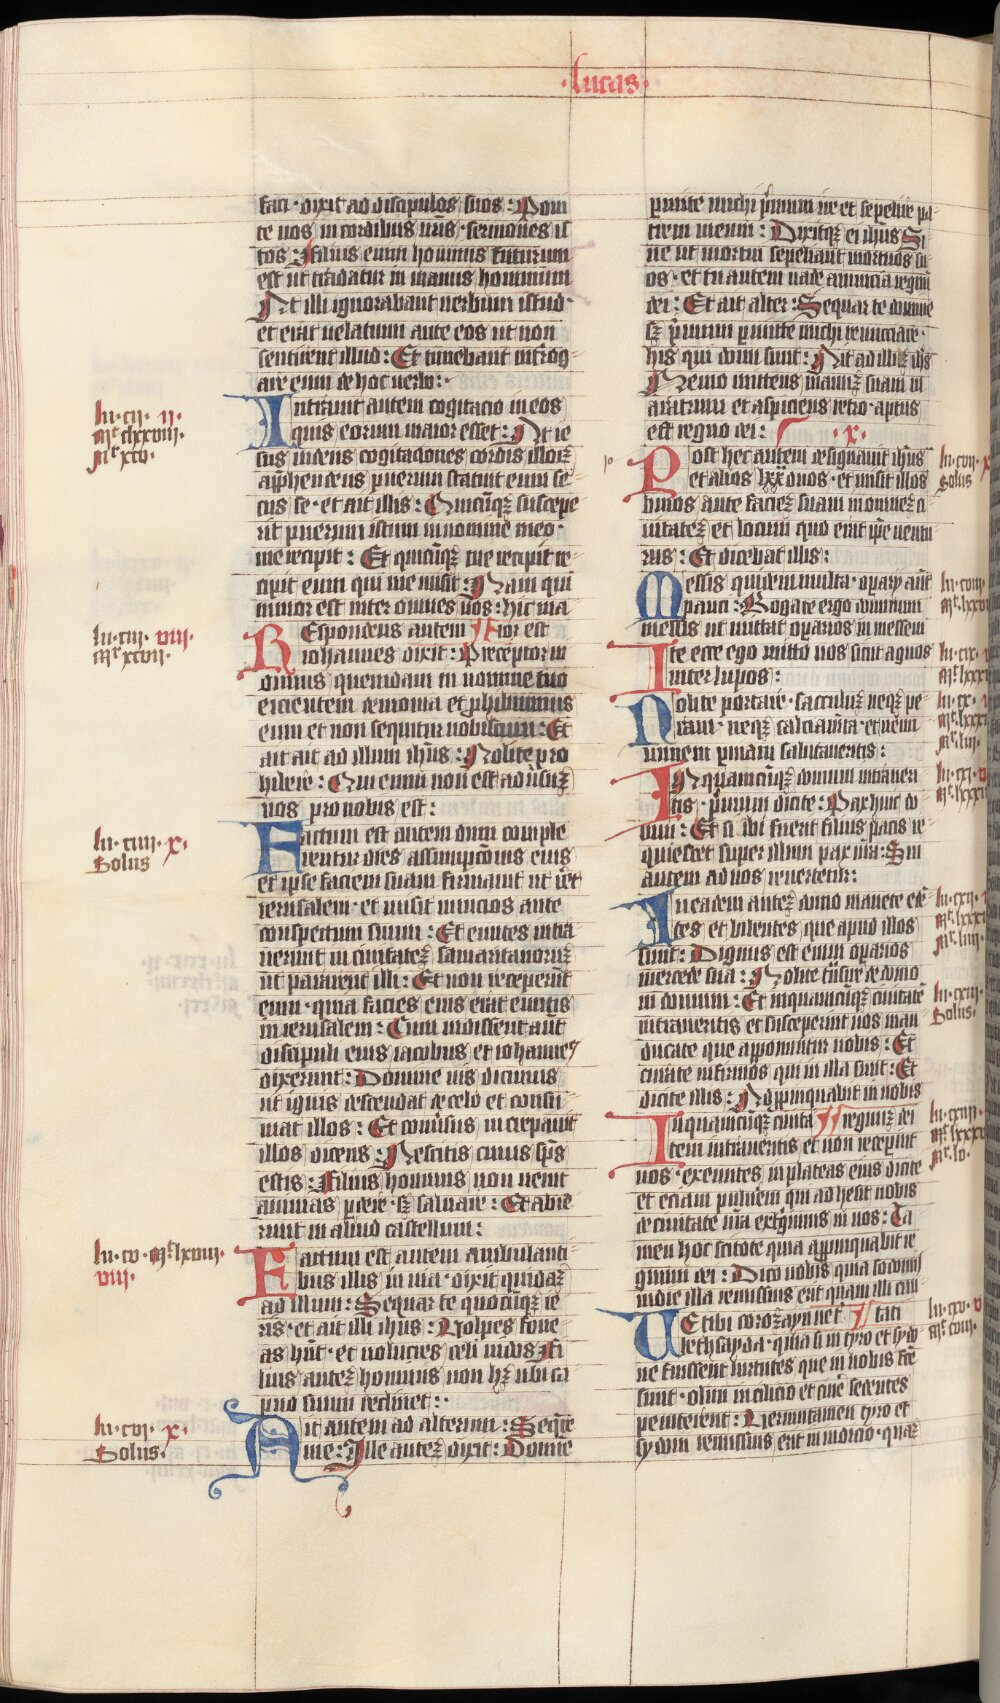 ·lucas·
faci· dixit ad discipulos suos: Poni
te uos in cordibus uris sermones is
tos: Filius enim hominis futurum
est ut tradatur in manus hominum
At illi ignorabant uerbum istud·
et erat uelatum ante eos ut non
sentirent illud: Et timebant introg
are eum de hoc uerbo:·
Intrauit autem cogitacio in eos
quis eorum maior esset: At ie
sus uidens cogitaciones cordis illorꝫ
apphendens puerum statuit eum se
cus se· et ait illis: Quicūqꝫ suscepe
rit puerum istum in nomine meo·
me recipit: Et quicūqꝫ me recipit re
cipit eum qui me misit: Nam qui
minor est inter omnes uos: hic ma
Respondens autem ¶ ior est
iohannes dixit: Preceptor ui
dimus quendam in nomine tuo
eicientem demonia et phibuimus
eum et non sequitur nobiscum: Et
ait ad illum ihūs: Nolite pro
hibere: Qui enim non est aduūsuꝫ
uos pro nobis est:
Factum est autem dum comple
rentur dies assumpcōnis eius
et ipse faciem suam firmauit ut iret
ierusalem· et misit nuncios ante
conspectum suum: Et euntes intra
uerunt in ciuitateꝫ samaritanoruꝫ
ut pararent illi: Et non receperūt
eum· quia facies eius erat euntis
in ierusalem: Cum uidissent aūt
discipuli eius iacobus et iohannes
dixerunt: Domine uis dicimus
ut ignis descendat de celo et consu
mat illos: Et conūsus increpauit
illos dicens: Nescitis cuius sp̄s
estis: Filius hominis non uenit
animas pdere· sꝫ saluare: Et abie
runt in aliud castellum:
Factum est autem ambulanti
bus illis in uia· dixit quidaꝫ
ad illum: Sequar te quocūqꝫ ie
ris· et ait illi ihūs: Uolpes foue
as hūt· et uolucres celi nidos Fi
lius auteꝫ hominis non hꝫ ubi ca
pud suum reclinet:·
Ait autem ad alterum: Seqre
me: Ille auteꝫ dixit: Domine
pmitte michi pimum ire et sepelire pa
trem meum: Dixitqꝫ ei ihūs Si
ne ut mortui sepeliant mortuos su
os· et tu autem uade annuncia regnū
dei: Et ait alter: Sequar te domine
sꝫ pimum pmitte michi renunciare·
his qui domi sunt: Ait ad illuꝫ ihs
Nemo mittens manuꝫ suam in
aratrum et aspiciens retro· aptus
est regno dei: ·x·
Post hec autem designauit ihūs
et alios lxx duos· et misit illos
binos ante facieꝫ suam in omneꝫ ci
uitateꝫ et locum quo erat ipse ventu
rus: Et dicebat illis:
Messis quidem multa· opary aūt
pauci: Rogate ergo dominum
messis ut mittat oparios in messem
Ite ecce ego mitto uos sicut agnos
inter lupos:
Nolite portare· sacculuꝫ neqꝫ pe
ram· neqꝫ calciamta· et nem
inem p uiam salutaueritis:
In quamcūqꝫ domum intraueri
tis· pimum dicite: Pax huic do
mui: Et si ibi fuerit filius pacis re
quiescet super illum pax ura: Sin
autem ad uos reuertetur:
In eadem auteꝫ domo manete ede
tes et bibentes que apud illos
sunt: Dignus est enim oparius
mercede sua: Nolite tūsire de domo
in domum: Et in quamcūqꝫ ciuitatē
intraueritis et susceperint uos man
ducate que apponuntur uobis: Et
curate infirmos qui in illa sunt: Et
dicite illis: Appinquabit in uobis
In quamcūqꝫ ciuita ¶ regnuꝫ dei
tem intraueritis et non receperint
uos· exeuntes in plateas eius dicite
et eciam puluem qui adhesit nobis
de ciuitate ura extgimus in uos: Ta
men hoc scitote quia appinquabit re
gnum dei: Dico uobis quia sodomis
in die illa remissius erit quam illi ciui
Ue tibi corozayn ue t ¶ tati
bethsayda· quia si in tyro et sydo
ne fuissent uirtutes que in uobis fcē
sunt· olim in cilicio et cinē sedentes
peniterent: Uerumtamen tyro et
sydoni remissius erit in iudicio· quaꝫ
lu·cii· ii·
Mr clxxviii·
Mr xcv·
lu·ciii· viii·
Mr xcvii·
lu·ciiii· x·
Solus
lu·cv· Mt lxviii·
viii·
lu·cvi· x·
Solus·
lu·cvii· x
Solus